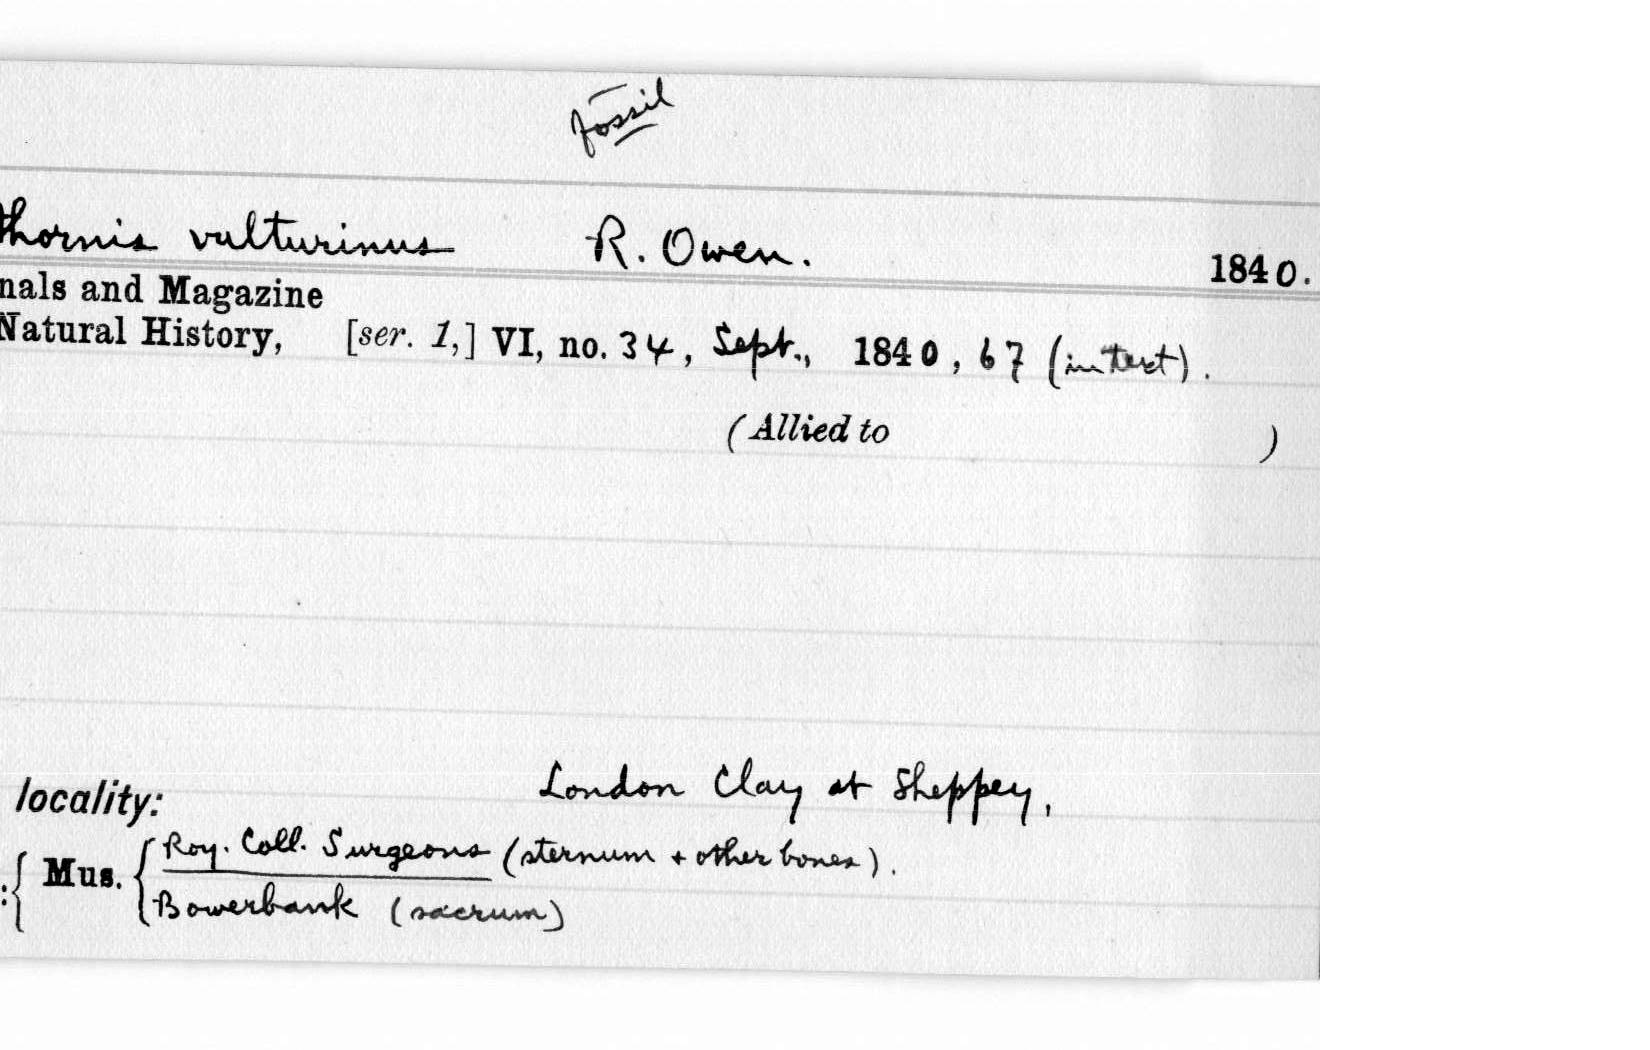 fossil
thornis vulturinus R. Owen. 1840.
nals and Magazine
Natural History, [ser. 1,] VI, no. 34, Sept., 1840, 67 (in text).
(Allied to )
locality: London Clay at Sheppey,
:{ Mus. { Roy. Coll. Surgeons (sternum + other bones).
Bowerbank (sacrum)